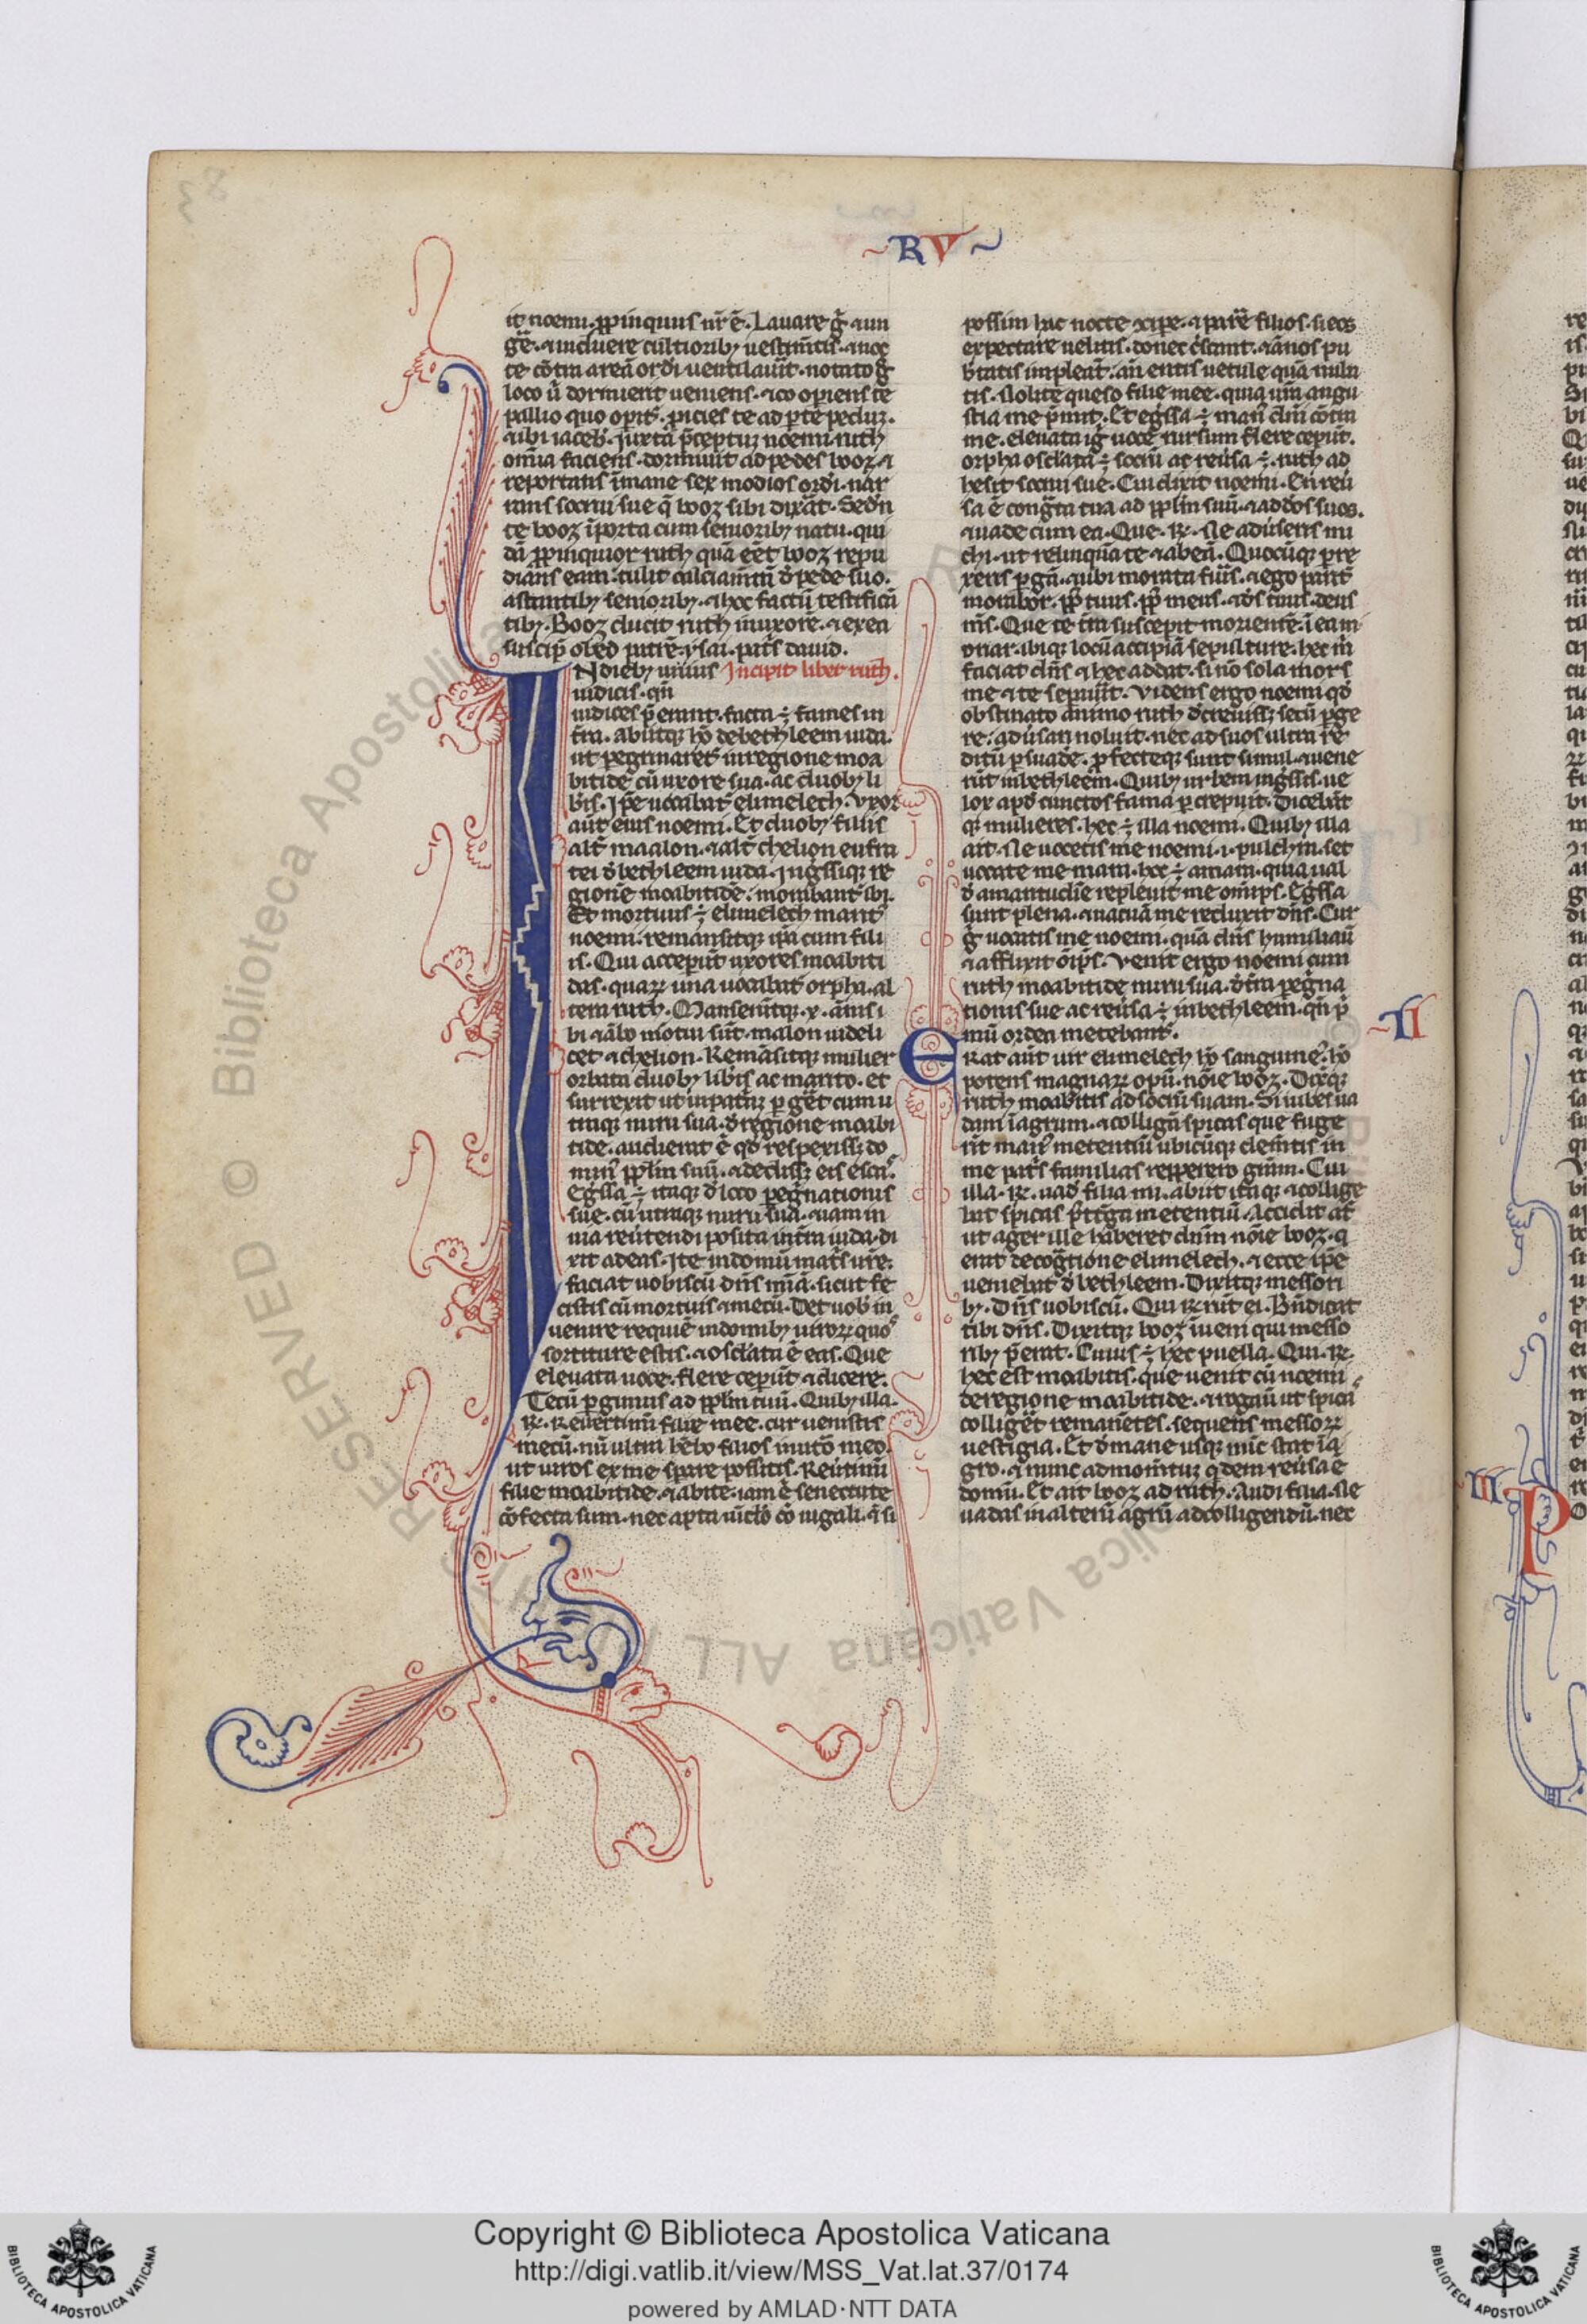 RV
it noemi. ꝓpinquus nr̄ ē. Lauare g̃ ⁊ un
ge. ⁊ induere cultiorib; uestim̄tis. ⁊ noc
te cōtra areā ordi uentilauit. notato g̃
loco u dormierit ueniens. ⁊ co operiens te
pallio quo opit̄. ꝓicies te ad ꝑtē peduz.
⁊ ibi iaceb̄. Juxta p̄ceptuz noemi ruth
omia faciens. dormiuit ad pedes booz. ⁊
reportans ī mane sex modios ordi. nar
rans socrui sue q̄ booz sibi dixat̄. Sedn̄
te booz ī porta cum seniorib; natu. qui
dā ꝓpinquior ruth quā eēt booz repu
dians eam. tulit calciam̄tū d̄ pede suo.
astantib; seniorib; ⁊ hoc factū testifican̄
tib;. Booz ducit ruth in uxorē. ⁊ ex ea
suscip̄ obed patrē ysai. pat̄s dauid.
N dieb; unius Incipit liber ruth.
iudicis. qn̄
iudices p̄erant. facta ÷ fames in
tr̄a. Abiitq; hō de bethleem iuda.
ut peg̃naret̄ in regione moa
bitide cū uxore sua. ac duob; li
b̄is. Ip̄e uocabat̄ elimelech. uxor
aūt eius noemi. Et duob; filiis
alt̄ maalon. ⁊ alt̄ chelion eufra
tei d̄ bethleem iuda. Ing̃ssiq; re
gionē moabitidē. morabant̄ ibi.
Et mortuus ÷ elimelech marit̄
noemi. remansitq; ip̄a cum fili
is. Qui acceper̄t uxores moabiti
das. quaꝝ una uocabat̄ orpha. al
tera ruth. Manserūtq; x. annis i
bi ⁊ ābo mortui sūt. malon uideli
cet ⁊ chelion. Remāsitq; mulier
orbata duob; lib̄is ac marito. et
surrexit ut in pat̄az ꝑget cum u
traq; nuru sua. d̄ regione moabi
tide. audierat ē qd̄ respexiss; do
min̄ ꝓplm suū. ⁊ dediss; eis escā.
Eg̃ssa ÷ itaq; d̄ loco peg̃nationis
sue. cū utraq; nuru sua. ⁊ iam in
uia reūtendi posita in tr̄a iuda. di
xit ad eas. Ite in domū mat̄s ur̄e.
faciat uobiscū dn̄s mīā. sicut fe
cistis cū mortuis ⁊ mecū. Det uob̄ in
uenire requiē in domib; uiroꝝ quos
sortiture estis. ⁊ osclata ē eas. Que
eleuata uoce. flere ceper̄t ⁊ dicere.
Tecū ꝑgimus ad ꝓplm tuū. Quib; illa.
R̄. Reuertimī filie mee. cur uenistis
mecū. nū ultra hēbo filios in utō meo.
ut uiros ex me spare possitis. Reūtimī
filie moabitide. ⁊ abite. iam ē senectute
cōfecta sum. nec apta uīclo cōiugali. ⁊ si
possim hac nocte ꝯcipe. ⁊ parē filios. si eos
expectare uelitis. donec c̄scant. ⁊ ānos pu
b̄tatis impleāt. an̄ eritis uetule quā nuba
tis. Nolite queso filie mee. quia ur̄a angu
stia me p̄mit. Et eg̃ssa ÷ man̄ dn̄i cōtra
me. Eleuata ig̃ uoce rursum flere ceper̄t.
orpha osclata ÷ socrū ac reūsa ÷. ruth ad
hesit socrui sue. Cui dixit noemi. En reū
sa ē cong̃ta tua ad ꝓplm suū. ⁊ ad d̄os suos.
⁊ uade cum ea. Que. R̄. Ne aduseris mi
chi. ut relinquā te ⁊ abeā. Quocūq; ꝑre
xeris ꝑgā. ⁊ ubi morata fuīs. ⁊ ego parit̄
morabor. ꝓpl̄s tuus. ꝓpl̄s meus. ⁊ d̄s tuus. deus
m̄s. Que te tr̄a susceperit morientē. ī eam
oriar. ibiq; locū accipiā sepulture. hec m̄
faciat dn̄s ⁊ hec addat. si nō sola mors
me ⁊ te sepauit. Videns ergo noemi qd̄
obstinato animo ruth d̄creuiss; secū ꝑge
re. adūsari noluit. nec ad suos ultra re
ditū ꝑsuade. ꝓfecteq; sunt simul. ⁊ uene
rūt in bethleem. Quib; urbem ing̃ssis. ue
lox apd̄ cunctos fama ꝑcrepuit. Dicebāt
q; mulieres. hec ÷ illa noemi. Quib; illa
ait. Ne uocetis me noemi. i. pulchrā. set
uocate me mara. hoc ÷ amarā. quia ual
d̄ amaritudine repleuit me omīps. Eg̃ssa
sum plena. ⁊ uacuā me reduxit dn̄s. Cur
g̃ uocatis me noemi. quā dn̄s humiliauī
⁊ afflixit oīps. Venit ergo noemi cum
ruth moabitide nuru sua. d̄ tr̄a peg̃na
tionis sue ac reūsa ÷ in bethleem. qn̄ p̄
mū ordea metebant̄.
II
ERat aūt uir elimelech hō sanguineꝰ. hō
potens magnaꝝ opū. noīe booz. Dixitq;
ruth moabitis ad socrū suam. Si iubes ua
dam ī agrum. ⁊ colligā spicas que fuge
rīt man̄ metentiū ubicūq; clem̄tis in
me pat̄s familias reppero gr̄am. Cui
illa. R̄. uad̄ filia mi. abiit itaq; ⁊ collige
bat spicas p̄ t̄ga metentiū. Accidit at̄
ut ager ille haberet dn̄m noīe booz. q̄
erat de cog̃tione elimelech. ⁊ ecce ip̄e
ueniebat d̄ bethleem. Dixitq; messori
b;. Dn̄s uobiscū. Qui R̄.rūt ei. Bn̄dicat
tibi dn̄s. Dixitq; booz iuueni qui messo
rib; p̄erat. Cuius ÷ hec puella. Qui. R̄.
hec est moabitis. que uenit cū noemi
de regione moabitide. ⁊ rogauī ut spicas
colliget remanētes. sequens messoꝝ
uestigia. Et d̄ mane usq; nūc stat ī a
gro. ⁊ nunc ad momtuz qdem reūsa ē
domū. Et ait booz ad ruth. Audi filia. Ne
uadas in alterū agrū ad colligendū. nec
III
Copyright © Biblioteca Apostolica Vaticana
http://digi.vatlib.it/view/MSS_Vat.lat.37/0174
powered by AMLAD·NTT DATA
BIBLIOTECA APOSTOLICA VATICANA
BIBLIOTECA APOSTOLICA VATICANA